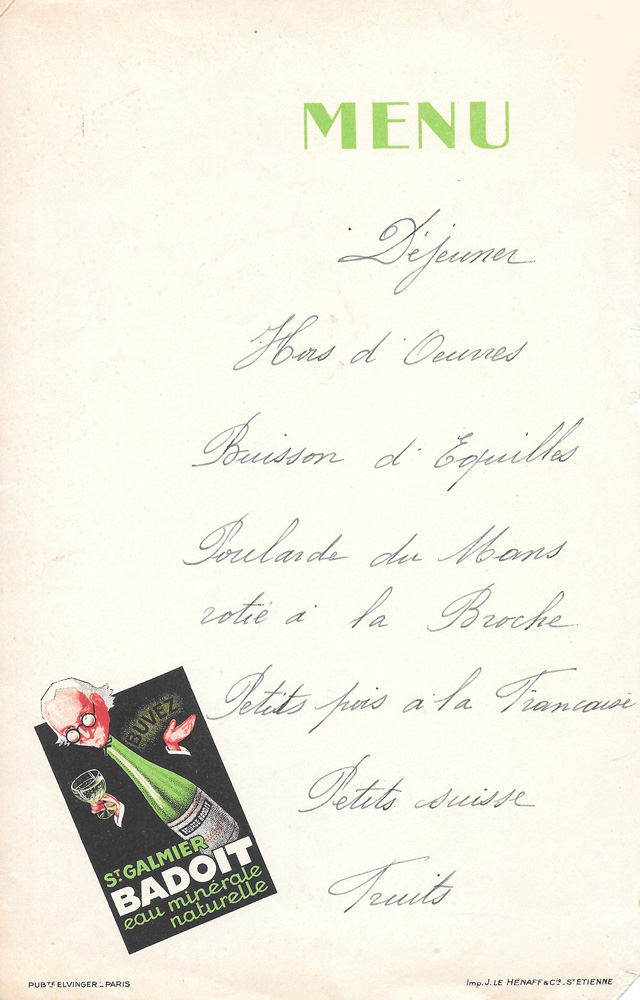 MENU
Déjeuner
Hors d'Oeuvres
Buisson d'Equilles
Poularde du Mans
rotie à la Broche
Petits pois à la Francaise
Petits suisse
Fruits
BUVEZ
SOURCE BADOIT
ST GALMIER
BADOIT
eau minérale
naturelle
PUBTÉ ELVINGER - PARIS
Imp. J. LE HÉNAFF & Cie - ST ETIENNE